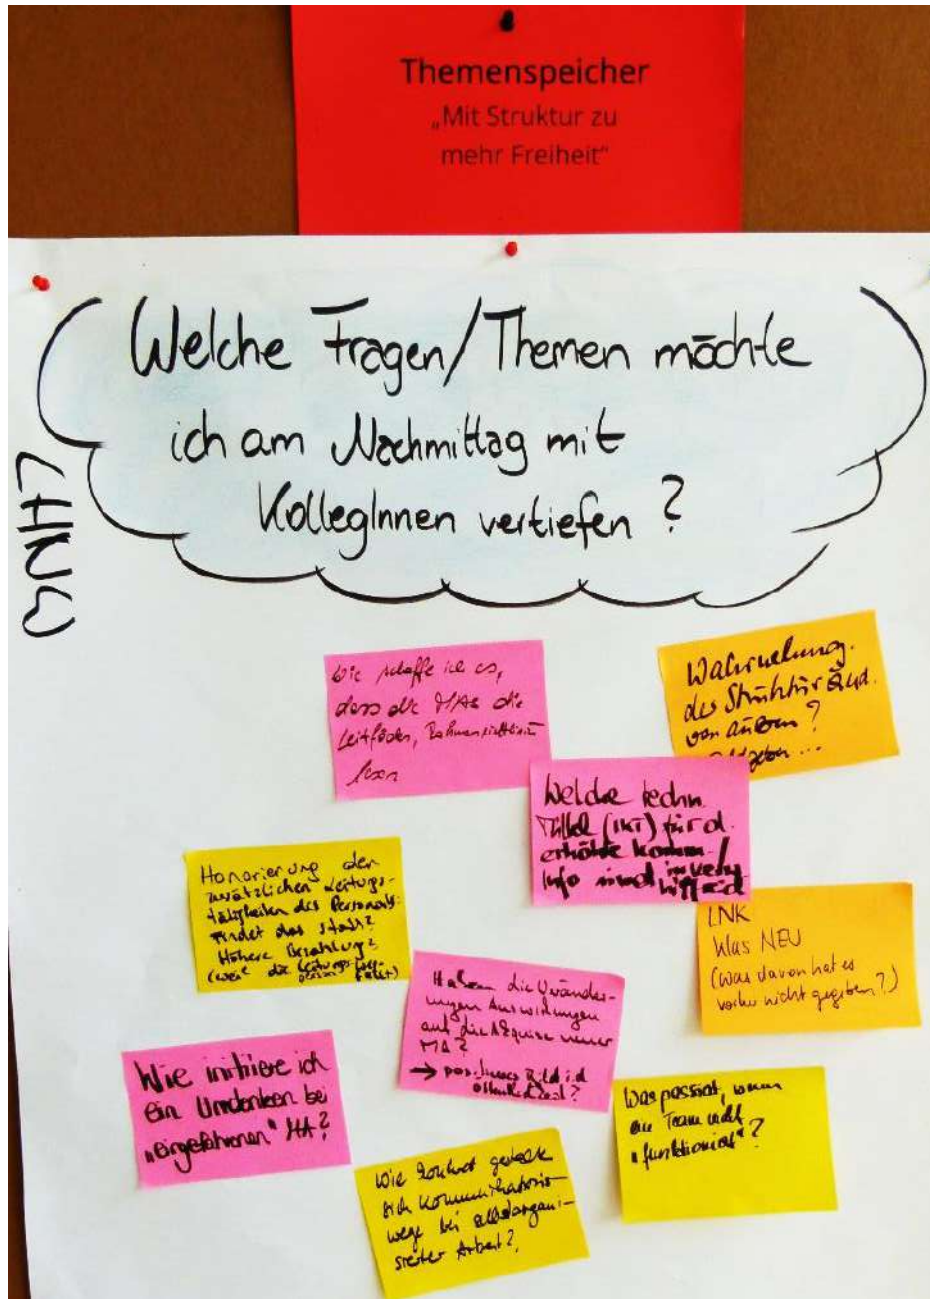 Themenspeicher
„Mit Struktur zu
mehr Freiheit“
Welche Fragen/Themen möchte
ich am Nachmittag mit
KollegInnen vertiefen?
LHNW
Wie schaffe ich es,
dass die MAs die
Leitfäden, Rahmenrichtlinien
lesen
Wahrnehmung
der Strukturänd.
von außen?
Welche techn.
Mittel (IKT) für d.
erhöhte Komm./
Info sind in
Honorierung der
zusätzlichen Leitungs-
tätigkeiten des Personals
findet das statt?
Höhere Bezahlung?
(weil die
LNK
Was NEU
(was davon hat es
vorher nicht gegeben?)
Haben die Veränder-
ungen Auswirkungen
auf die Akquise neuer
MA?
→ positives Bild i.d.
Öffentlichkeit?
Wie initiiere ich
ein Umdenken bei
„eingefahrenen“ MA?
Was passiert, wenn
ein Team nicht
„funktioniert“?
Wie konkret
sich Kommunikations-
wege bei selbstorgani-
sierter Arbeit?